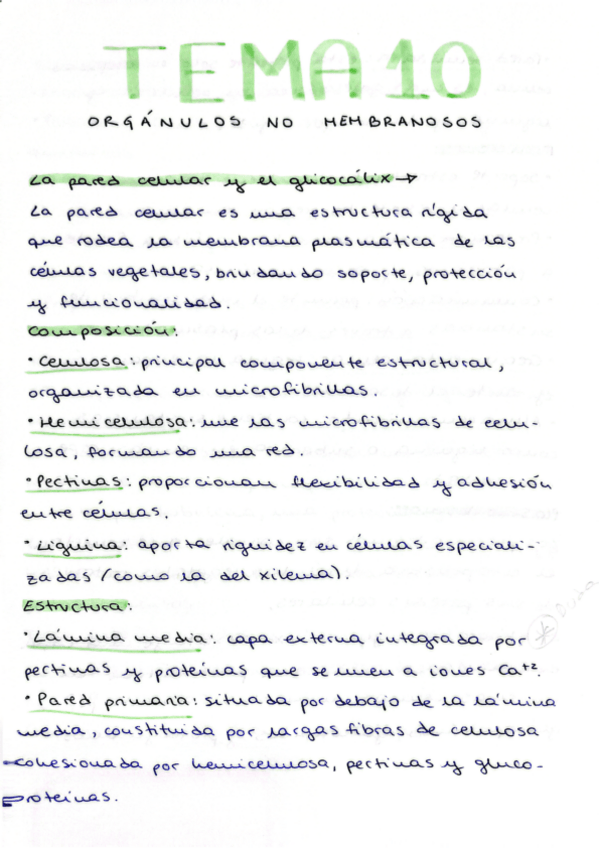 TEMA 10
ORGÁNULOS NO MEMBRANOSOS
La pared celular y el glicocálix →
La pared celular es una estructura rígida
que rodea la membrana plasmática de las
células vegetales, brindando soporte, protección
y funcionalidad.
Composición:
· Celulosa: principal componente estructural,
organizada en microfibrillas.
· Hemicelulosa: une las microfibrillas de celu-
losa, formando una red.
· Pectinas: proporcionan flexibilidad y adhesión
entre células.
· Lignina: aporta rigidez en células especiali-
zadas (como la del xilema).
Estructura:
· Lámina media: capa externa integrada por
pectinas y proteínas que se unen a iones Ca⁺².
· Pared primaria: situada por debajo de la lámina
media, constituida por largas fibras de celulosa
cohesionada por hemicelulosa, pectinas y gluco-
proteínas.